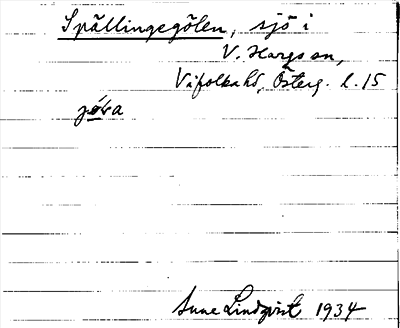 Spällingegölen, sjö i
V. Hargs sn,
Vifolka hd, Österg. l. 15
göra
Sune Lindqvist 1934